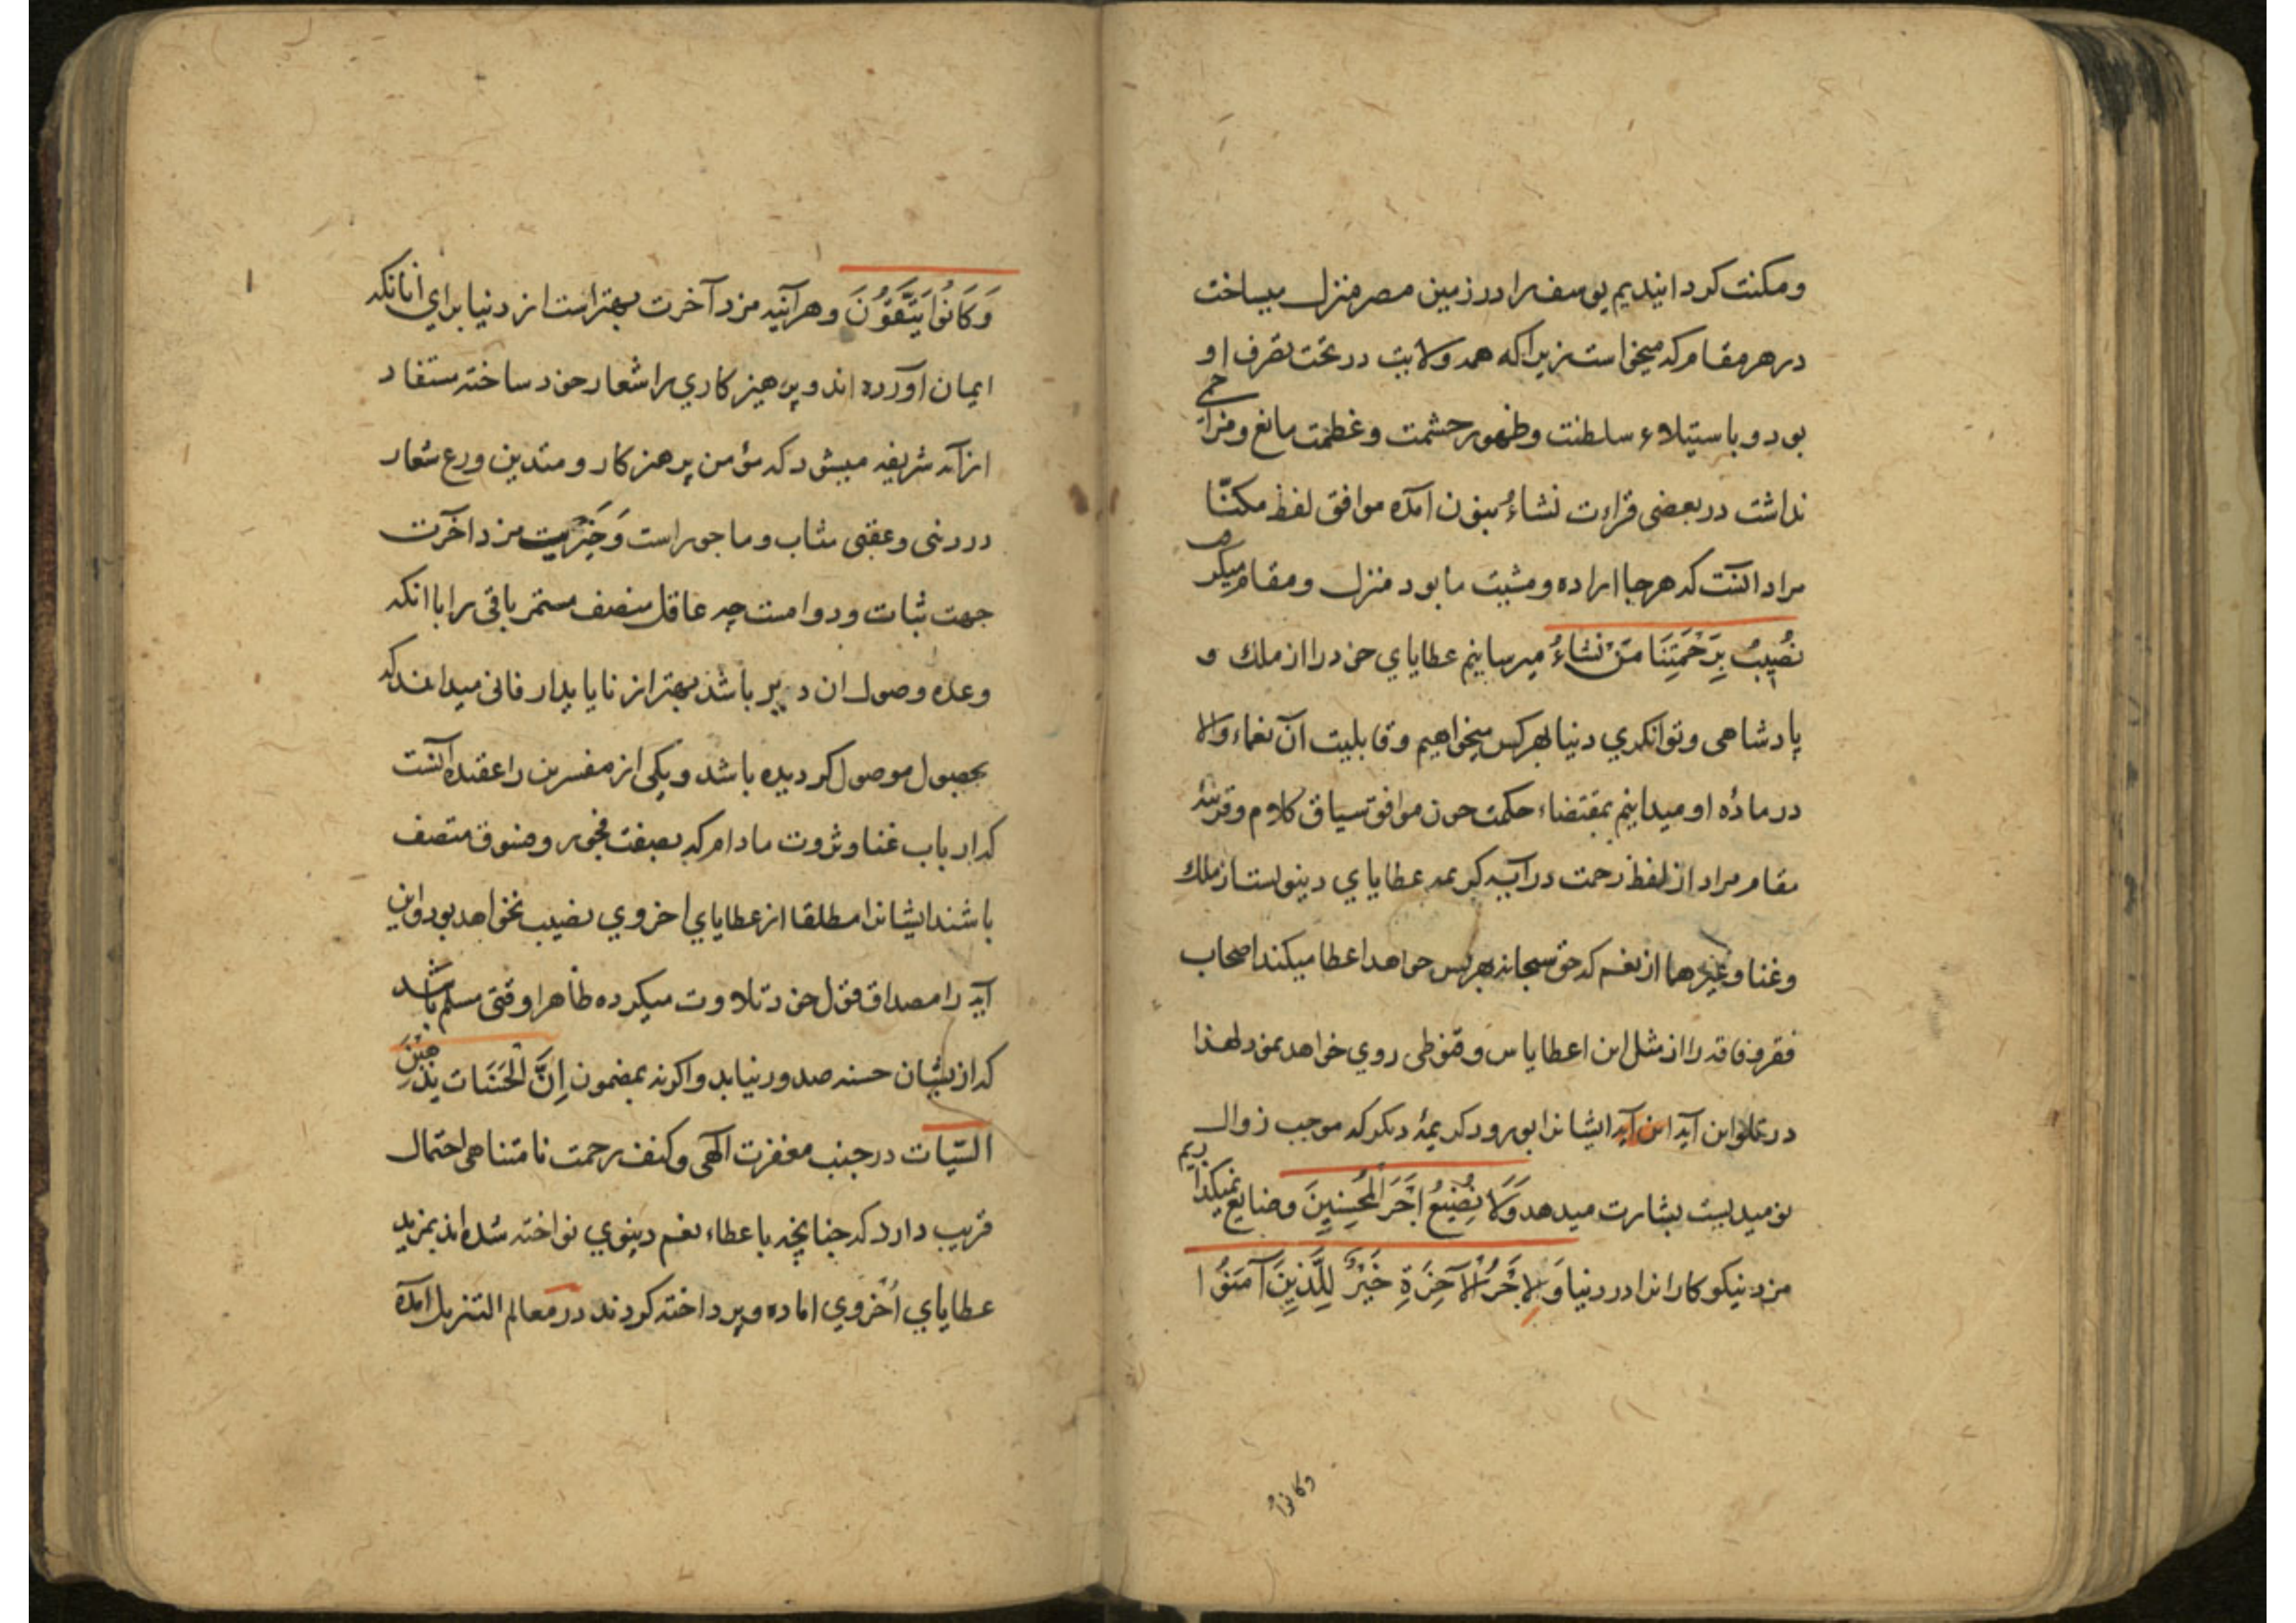 ومکنت کردانیدیم یوسف را در زمین مصر منزل میساخت
در هر مقام که میخواست زیرا که همه ولایت در تحت تصرف او
بود و باستیلاء سلطنت وظهور حشمت وعظمت مانع ومزاحمی
نداشت در بعضی قراءت نشاءُ بنون آمده موافق لفظ مکنّا
مراد آنست که هر جا اراده ومشیت ما بود منزل ومقام میکرد
نُصِیبُ بِرَحْمَتِنَا مَنْ نَشَاءُ میرسانیم عطایاي خود را از ملك و
پادشاهی وتوانکري دنیا بهر کس میخواهیم وقابلیت آن نعماء والا
در مادّه او میدانیم بمقتضاء حکمت خود موافق سیاق کلام وقرینۀ
مقام مراد از لفظ رحمت در آیه کریمه عطایاي دینویست از ملك
وغنا وغیرهما از نعم که حق سبحانه بهر کس خواهد اعطا میکند اصحاب
فقر وفاقه را از مثل این اعطا یاس وقنوطی روي خواهد نمود لهذا
در تلو این آیه این آیه ایشانرا بورود کریمۀ دیکر که موجب زوال
نومیدیست بشارت میدهد وَلَا نُضِیعُ اَجْرَ الْمُحْسِنِینَ وضایع نمیکذاریم
مزد نیکوکارانرا در دنیا وَلَاَجْرُ الْآخِرَةِ خَیْرٌ لِلَّذِینَ آمَنُوا
وکانوا
وَکَانُوا یَتَّقَوُنَ وهرآینه مزد آخرت بهتر است از دنیا براي آنانکه
ایمان آورده اند و پرهیزکاري را شعار خود ساخته ستفاد
از آیه شریفه میشود که مؤمن پرهزکار ومتدین ورع شعار
در دنی وعقبی مثاب وماجور است وَخَیْریت مزد آخرت
جهت ثبات ودوامست چه عاقل منصف مستمر باقی را با آنکه
وعده وصول ان دیر باشد بهتر از ناپایدار فانی میداند که
بحصول موصول کردیده باشد ویکی از مفسرین را عقیده آنست
که ارباب غنا وثروت مادام که بصفت فجور وفسوق متصف
باشند ایشانرا مطلقا از عطایاي اخروي نصیب نخواهد بود واین
آیه را مصداق قول خود تلاوت میکرده ظاهرا وقتی مسلم باشد
که از یشان حسنه صدور نیابد واکرنه بمضمون اِنَّ الْحَسَنَات یُذْهِبْنَ
السَّیّات در جنب مغفرت الهی وکنف رحمت نامتناهی احتمال
قریب دارد که چنانچه باعطاء نعم دینوي نواخته شده اند بمزید
عطایاي اُخروي اماده وپرداخته کردند در معالم التنزیل آمده